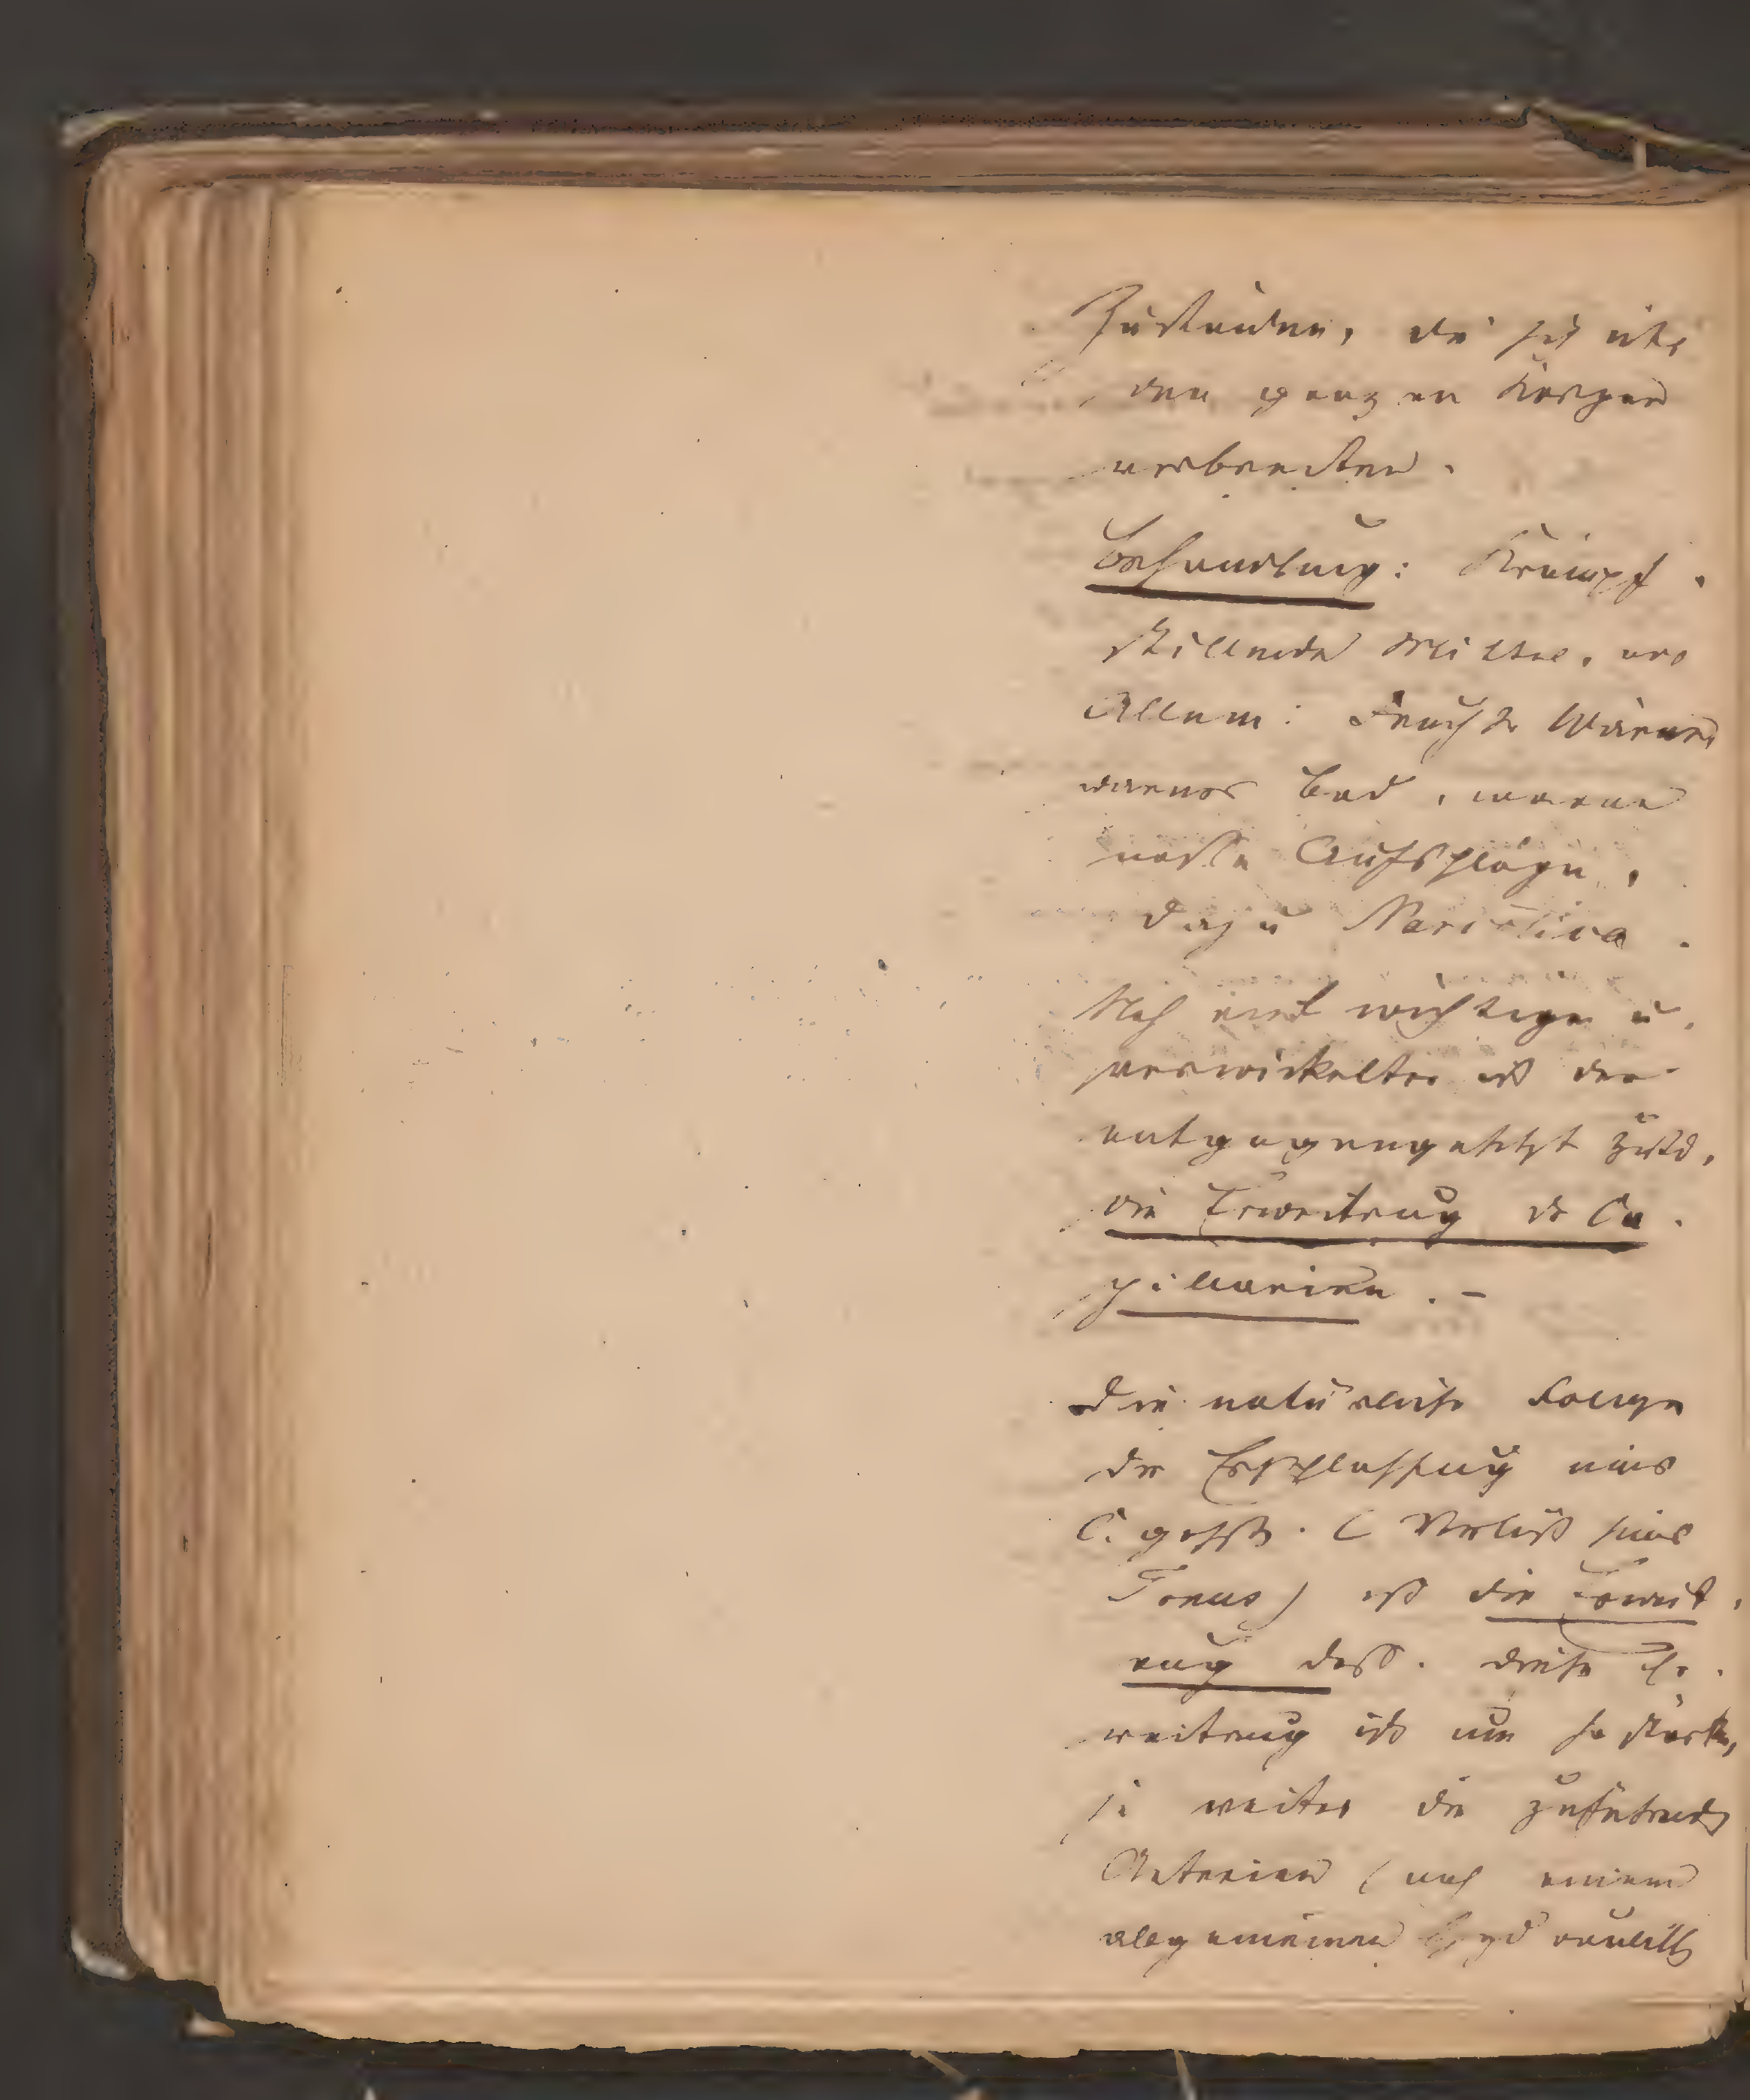 Zuständen, die sich über
den ganzen Körper
verbreiten.
Behandlung: Krampf-
stillende Mittel, vor
Allem: Feuchte Wärme
warmes Bad, warme
nasse Aufschläge,
dazu Narcotica.
Noch viel wichtiger u.
verwickelter ist der
entgegengesetzt Zustd,
die Erweiterung der Ca-
pillarien. -
Die natürliche Folge
der Erschlaffung eines
C. gefßs. (Verlust seines
Tonus) ist die Erweit-
rung dess. Diese Er-
weitrung ist um so stärker,
je weiter die zuführend
Arterien (nach einem
allgemeinen hydraulisch